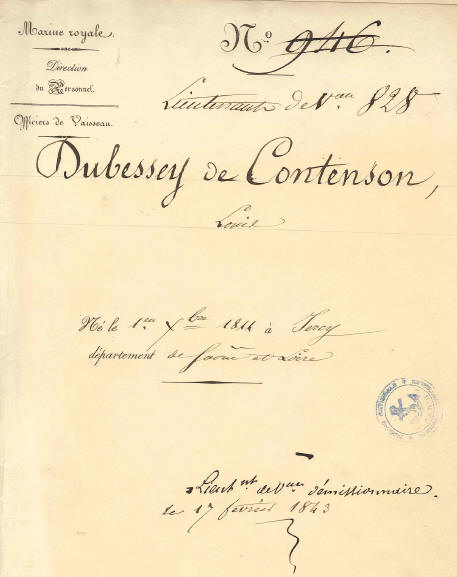 Marine royale.
Direction
du Personnel.
Officiers de Vaisseau.
N.º 946.
Lieutenant de V.au 828
Dubessey de Contenson,
Louis
Né le 1.er Xbre 1811 à
département de Saône et Loire
Lieut.nt de V.au démissionnaire.
le 17 février 1843